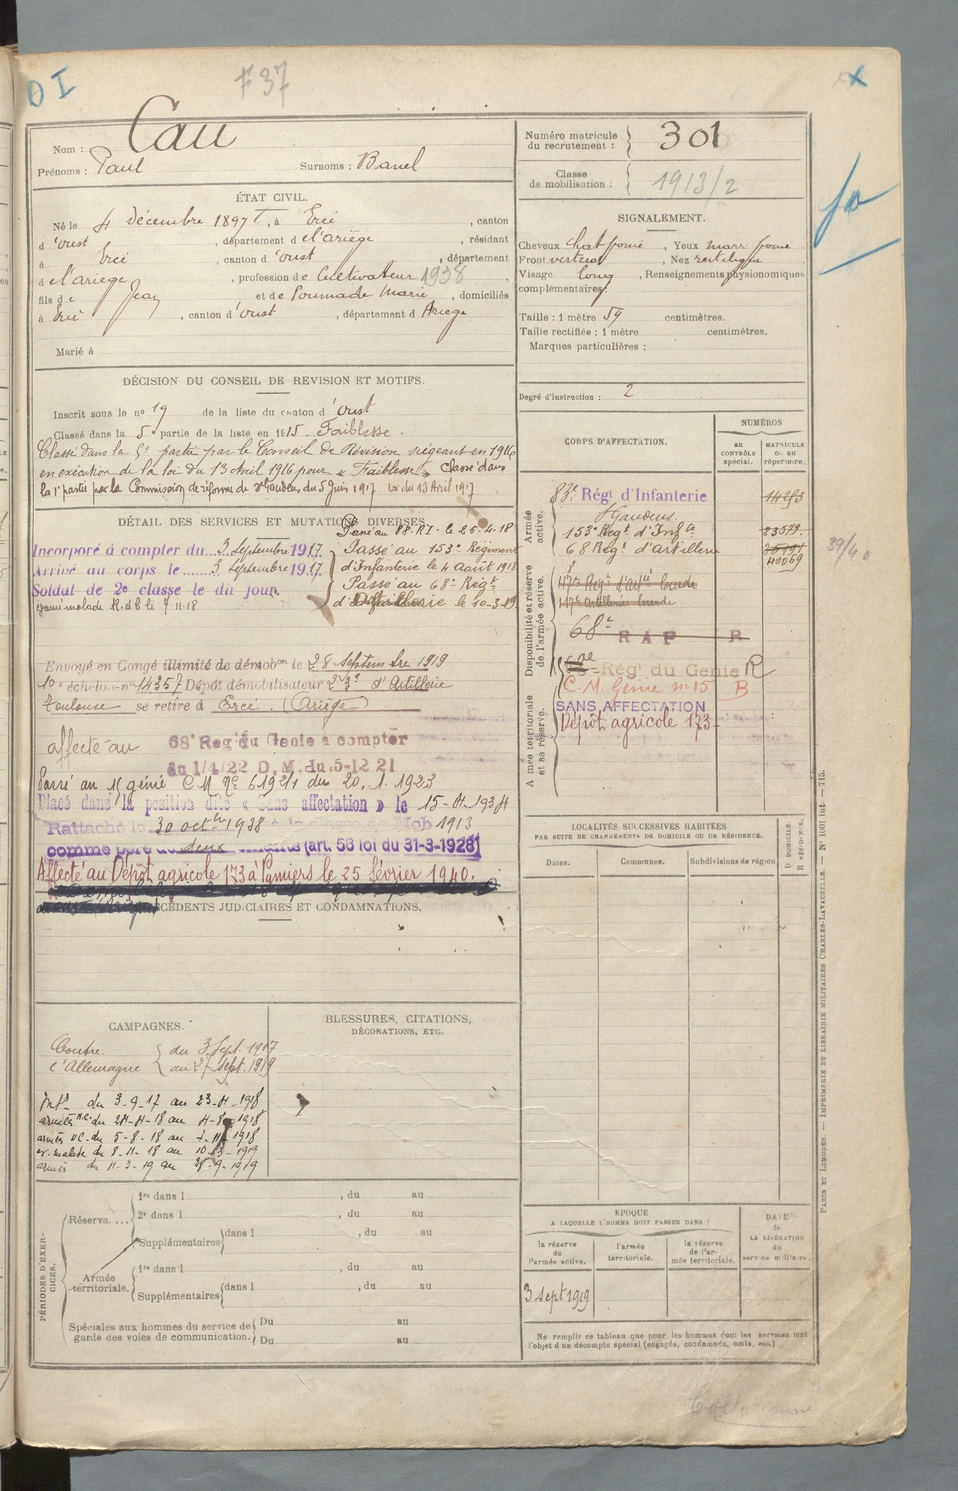 O I
F 37
Nom : Cau
Prénoms : Paul Surnoms : Banel
Numéro matricule du recrutement : 301
Classe de mobilisation : 1913/2
ÉTAT CIVIL.
Né le 4 décembre 1897, à Ercé, canton
d'Oust, département de l'ariège, résidant
à Ercé, canton d'Oust, département
de l'ariège, profession de Cultivateur 1938
fils de Jean et de Pounade Marie, domiciliés
à Ercé, canton d'Oust, département d Ariège
Marié à
SIGNALEMENT.
Cheveux chat foncé, Yeux marr foncé
Front verteux, Nez rectiligne
Visage long, Renseignements physionomiques
complementaires
Taille : 1 mètre 59 centimètres.
Taille rectifiée : 1 mètre centimètres.
Marques particulières :
Degré d'instruction : 2
DÉCISION DU CONSEIL DE REVISION ET MOTIFS.
Inscrit sous le no 19 de la liste du canton d'Oust
Classé dans la 5e partie de la liste en 1915 Faiblesse.
Classé dans la 5e partie par le Conseil de Révision siégeant en 1916
en exécution de la loi du 13 Avril 1916 pour « Faiblesse » Classé dans
la 1e partie par la Commission de réforme de St Gaudens du 5 Juin 1917 Loi du 13 Avril 1917
DÉTAIL DES SERVICES ET MUTATIONS DIVERSES.
Passé au 88 R.I. le 25-4-18
Incorporé à compter du 3 Septembre 1917
Arrivé au corps le 3 Septembre 1917
Soldat de 2e classe le du jour.
Passé au 153e Régiment
d'Infanterie le 4 Août 1918
Passé au 68e Régt
d'Artillerie le 10-3-19
Envoyé en Congé illimité de démobon le 28 Septembre 1919
10e échelon no 14357 Dépôt démobilisateur 23e d'Artillerie
Toulouse se retire à Ercé. (Ariège)
affecté au 68e Reg du Genie à compter
du 1/4/22 D.M. du 5-12 21
Passé au génie C.M. No 61921 du 20.1.1923
Placé dans la position dite « Sans affectation » le 15-4-1934
Rattaché le 30 octbre 1938 à la classe de Mob 1913
comme père de deux enfants (art. 58 loi du 31-3-1928)
Affecté au Dépôt agricole 173 à Pamiers le 25 février 1940.
ANTÉCÉDENTS JUDICIAIRES ET CONDAMNATIONS.
CORPS D'AFFECTATION.
NUMÉROS
au contrôle spécial.
matricule ou au répertoire.
Armée active.
83e Régt d'Infanterie
St Gaudens
153e Regt d'Infie
68 Regt d'artillerie
39/40
Disponibilité et réserve de l'armée active.
117e Artillerie lourde
68e R A P R
Régt du Genie R
C.M. Génie no 15 B
Armée territoriale et sa réserve.
SANS AFFECTATION
Dépôt agricole 173
LOCALITÉS SUCCESSIVES HABITÉES
PAR SUITE DE CHANGEMENTS DE DOMICILE OU DE RÉSIDENCE.
Dates. Communes. Subdivisions de région
D. DOMICILE.
R. RÉSIDENCE.
CAMPAGNES.
Contre du 3 Sept. 1917
l'Allemagne au 27 Sept. 1919
Intr du 3-9-17 au 23-4-1918
armées N.C. du 24-4-18 au 4-8-1918
armées D.C. du 5-8-18 au 7-11-1918
ev. malade du 8-11-18 au 10-3-1919
armées du 11-3-19 au 28-9-1919
BLESSURES, CITATIONS,
DÉCORATIONS, ETC.
PÉRIODES D'EXERCICES.
Réserve....
1re dans l , du au
2e dans l , du au
Supplémentaires dans l , du au
Armée territoriale.
1re dans l , du au
Supplémentaires dans l , du au
Spéciales aux hommes du service de
garde des voies de communication.
Du au
Du au
EPOQUE
A LAQUELLE L'HOMME DOIT PASSER DANS :
la réserve de l'armée active.
l'armée territoriale.
la réserve de l'armée territoriale.
DATE de LA LIBÉRATION du service militaire.
3 Sept 1919
Ne remplir ce tableau que pour les hommes dont les services font
l'objet d'un décompte spécial (engagés, condamnés, omis, etc.)
PARIS ET LIMOGES. — IMPRIMERIE ET LIBRAIRIE MILITAIRES CHARLES-LAVAUZELLE. — No 1001 int. — 715.